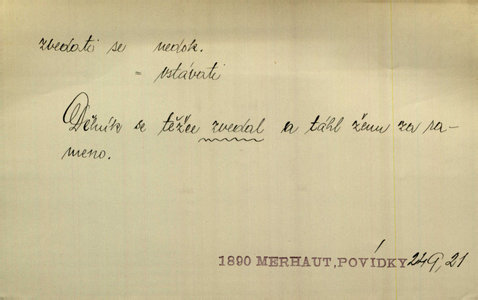 zvedati se nedok.
= vstávati
Dělník se těžce zvedal a táhl ženu za ra-
meno.
1890 MERHAUT, POVÍDKY 249, 21